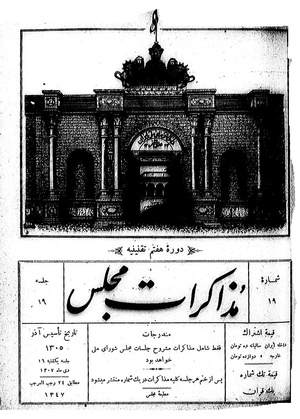 دورهٔ هفتم تقنینیه
جلسه
۱۹
مذاکرات مجلس
شمارهٔ
۱۹
تاریخ تأسیس آذر
۱۳۰۵
جلسه یکشنبه ۱۶
دی ماه ۱۳۰۷
مطابق ۲۴ رجب المرجب
۱۳۴۷
مندرجات
فقط شامل مذاکرات مشروح جلسات مجلس شورای ملی
خواهد بود
پس از ختم هر جلسه کلیه مذاکرات در یک شماره منتشر میشود
مطبعهٔ مجلس
قیمت اشتراک
داخله ایران سالیانه ده تومان
خارجه » دوازده تومان
قیمت تک شماره
یک قران